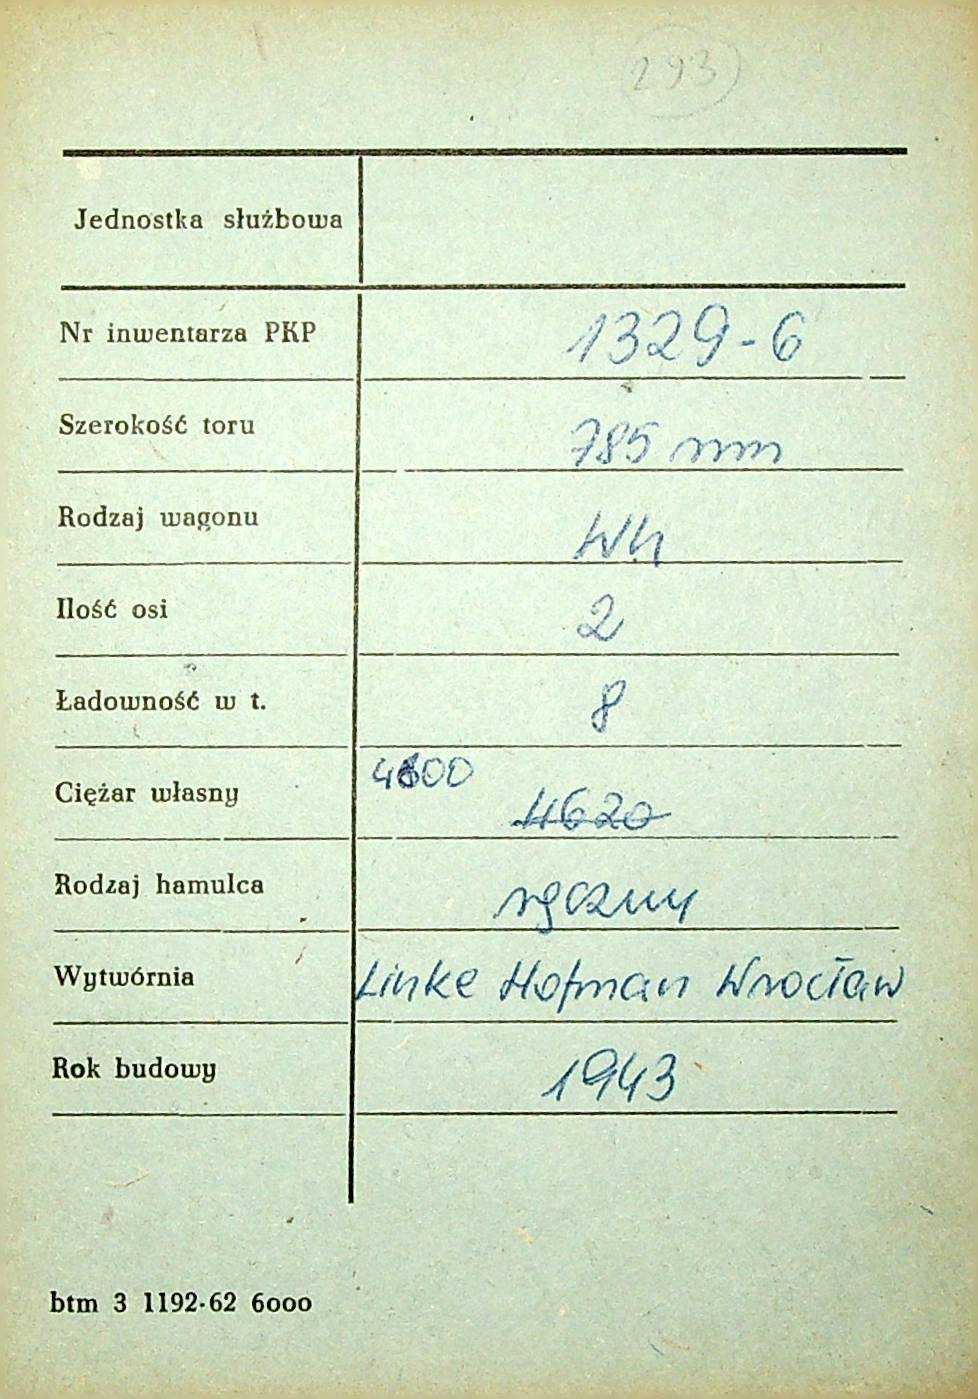 293
Jednostka służbowa
Nr inwentarza PKP 1329-6
Szerokość toru 785 mm
Rodzaj wagonu Wh
Ilość osi 2
Ładowność w t. 8
4600
Ciężar własny 4620
Rodzaj hamulca ręczny
Wytwórnia Linke Hofman Wrocław
Rok budowy 1943
btm 3 1192-62 6000